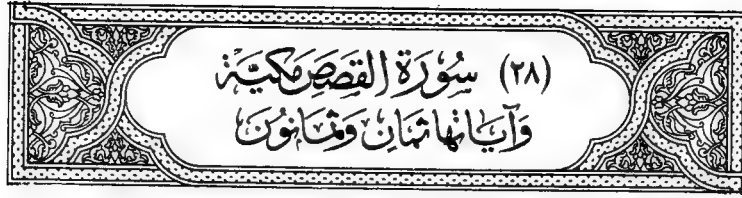 (٢٨) سُورَة القَصَصِ مَكيَّة
وَآيَاتهَا ثمَانِ وَثمَانوُنَ